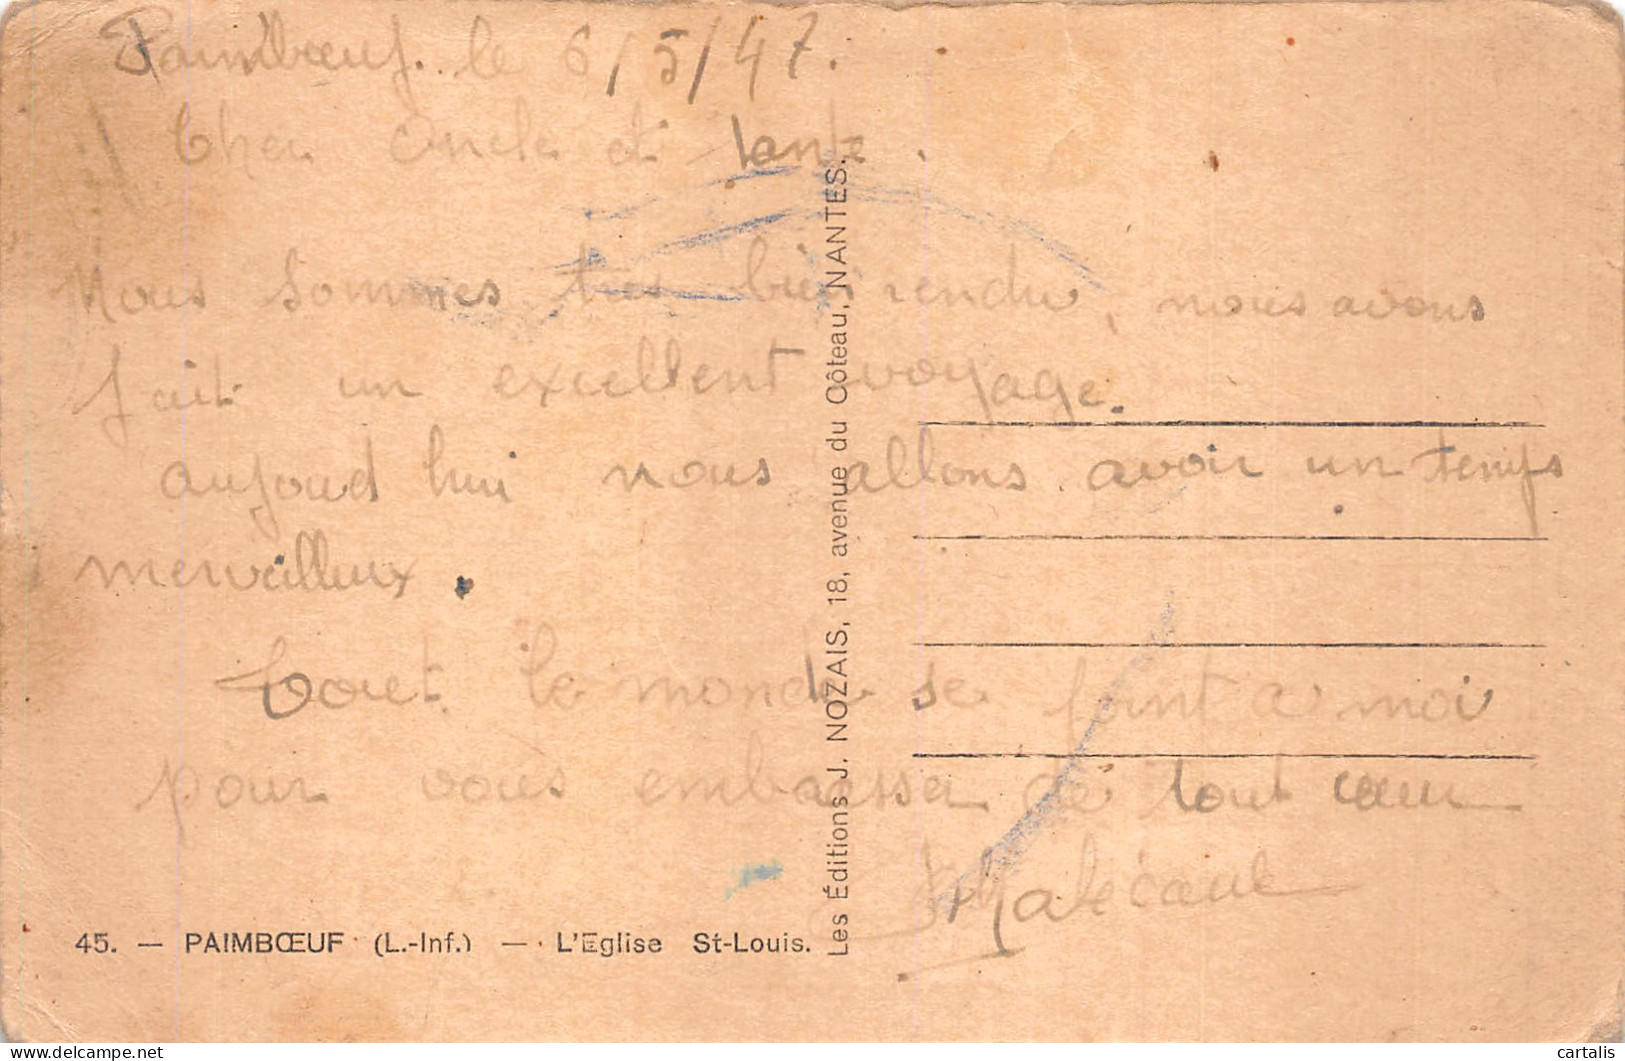 Paimbœuf. le 6/5/47.
Cher Oncle et tante.
Nous sommes très bien rendu, nous avons
fait un excellent voyage.
aujourd hui nous allons avoir un temps
merveilleux.
Tout le monde se joint a moi
pour vous embrasser de tout cœur
45. — PAIMBŒUF (L.-Inf.) — L'Eglise St-Louis.
Les Éditions J. NOZAIS, 18, avenue du Côteau, NANTES.
cartalis
delcampe.net